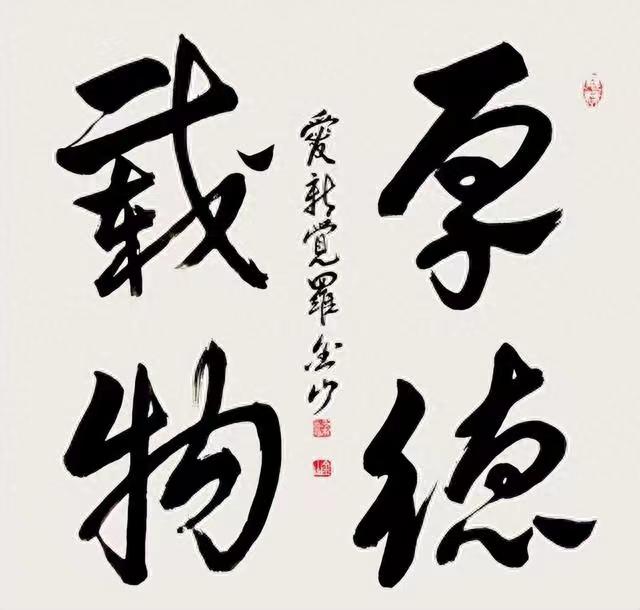 厚德
載物
愛新覺羅金山